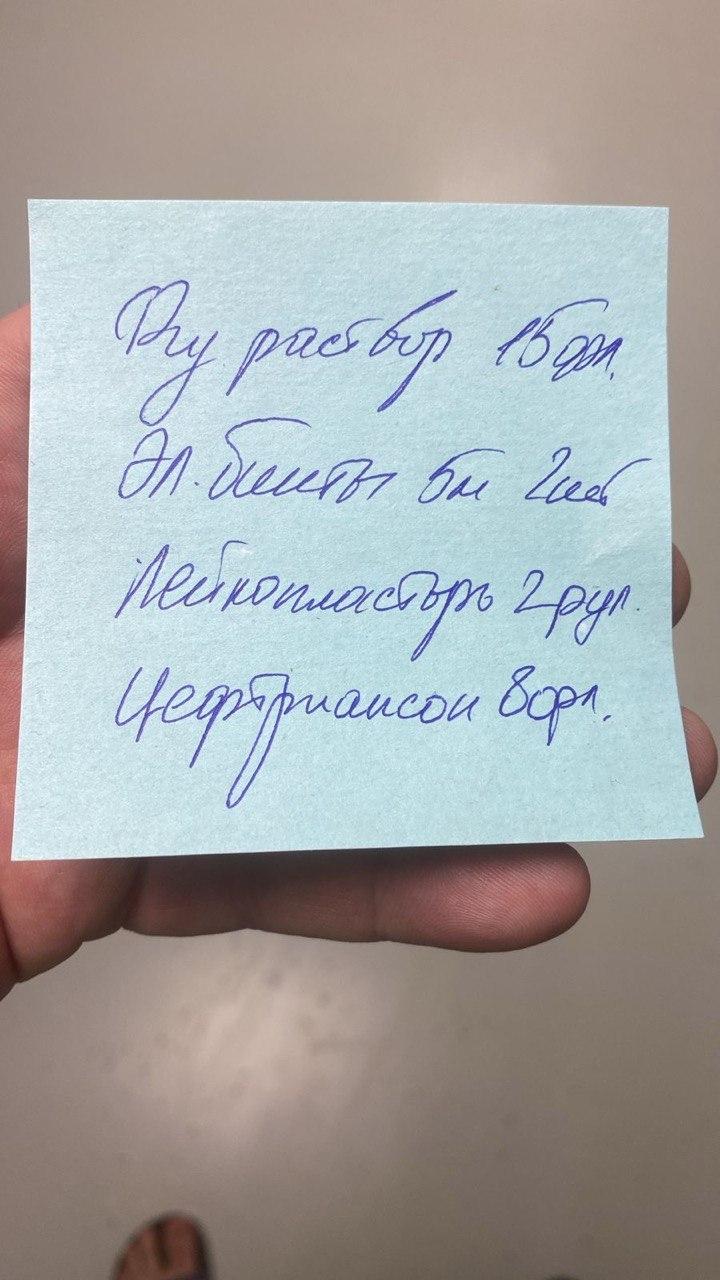 раствор 15 фл.
Эл. бинты 5м 2шт
Лейкопластырь 2 рул.
Цефтриаксон 8 фл.